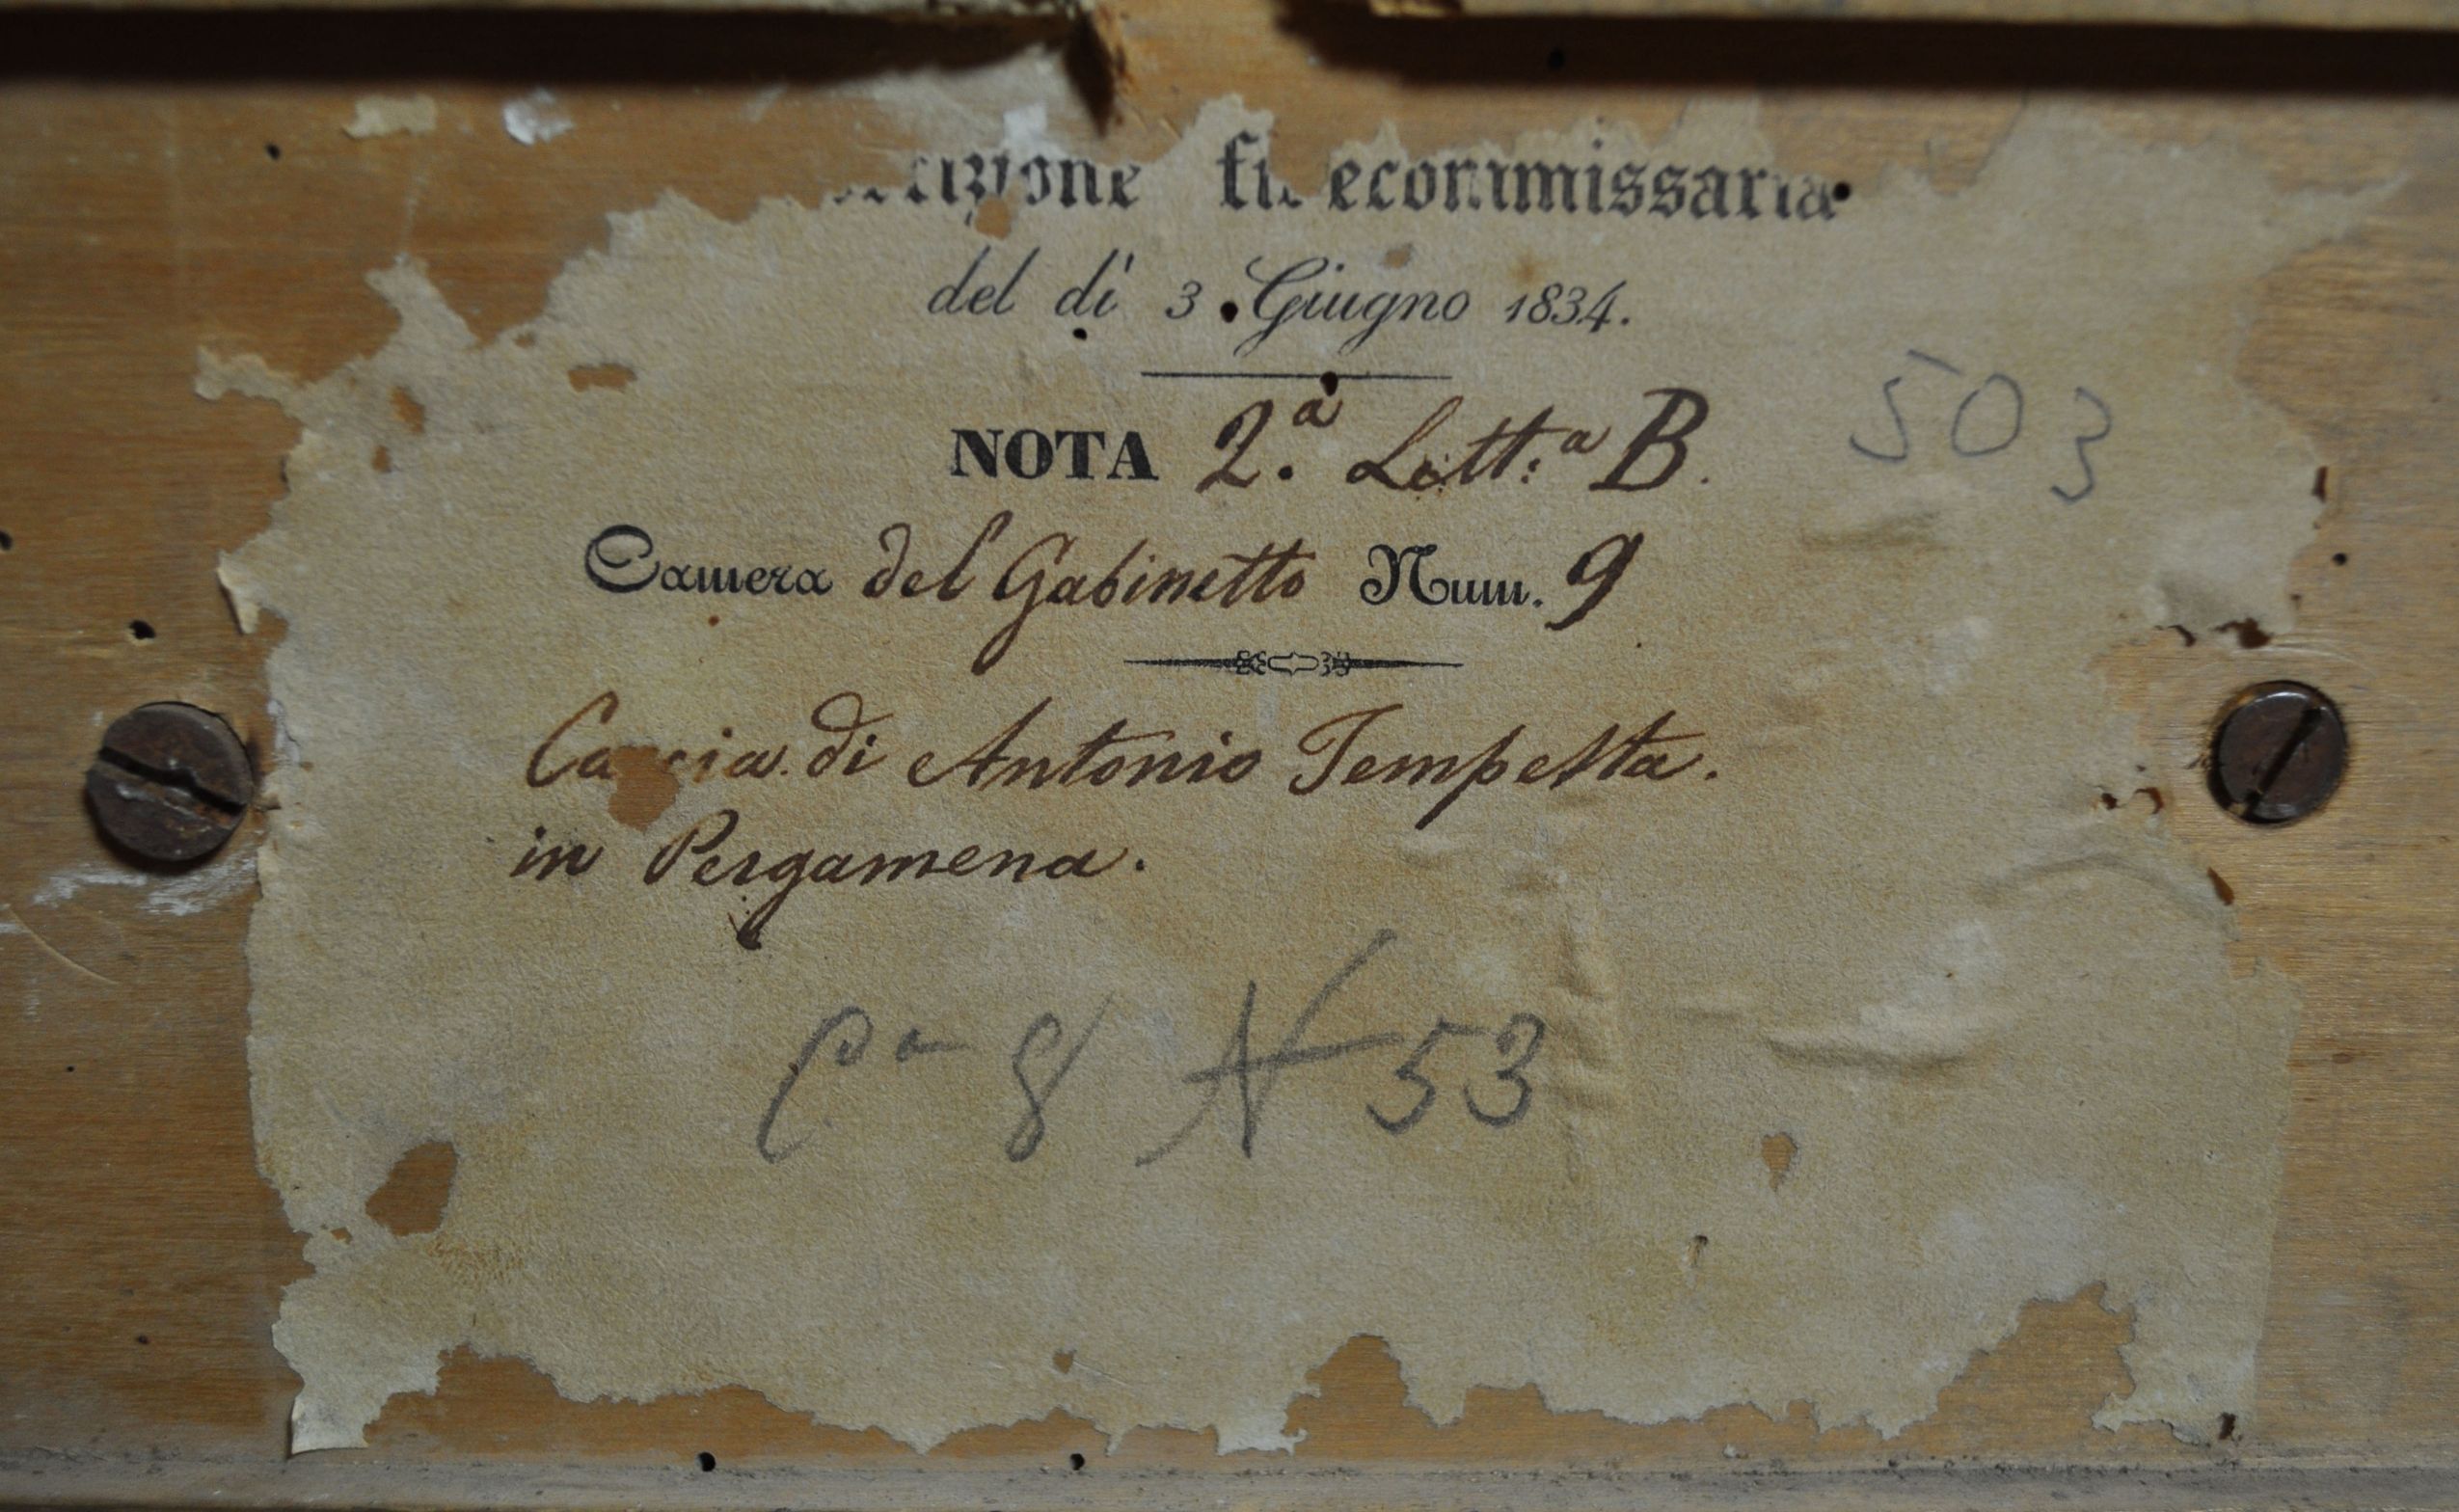 fidecommissaria
del dì 3. Giugno 1834.
NOTA 2.ª Lett:ª B.
503
Camera del Gabinetto Num. 9
Caccia di Antonio Tempesta.
in Pergamena.
8 N 53